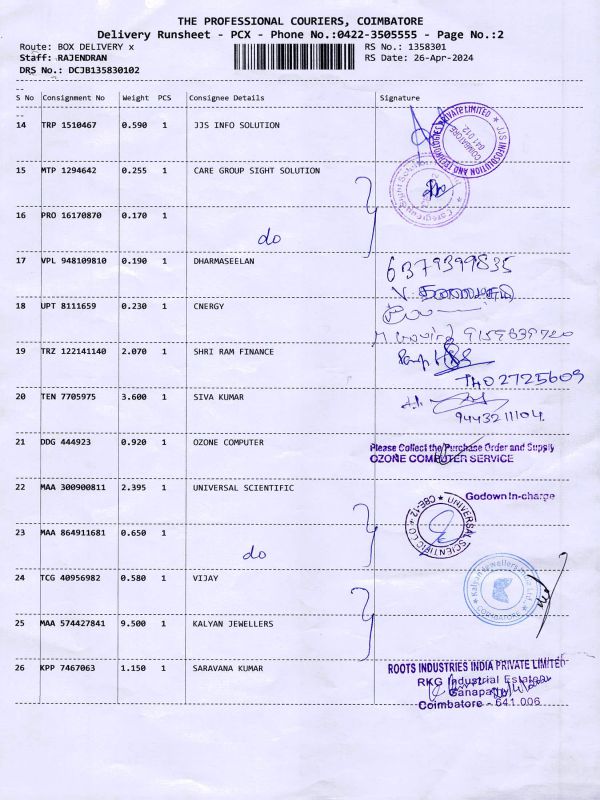 THE PROFESSIONAL COURIERS, COIMBATORE
Delivery Runsheet - PCX - Phone No.:0422-3505555 - Page No.:2
Route: BOX DELIVERY x
RS No.: 1358301
Staff: RAJENDRAN
RS Date: 26-Apr-2024
DRS No.: DCJB135830102
--
S No Consignment No Weight PCS Consignee Details Signature
--
14 TRP 1510467 0.590 1 JJS INFO SOLUTION
JJS INFOSOLUTION AND TECHNOLOGIES PRIVATE LIMITED
COIMBATORE
641 012
15 MTP 1294642 0.255 1 CARE GROUP SIGHT SOLUTION
16 PRO 16170870 0.170 1
do
17 VPL 948109810 0.190 1 DHARMASEELAN
6379399835
18 UPT 8111659 0.230 1 CNERGY
9159639720
19 TRZ 122141140 2.070 1 SHRI RAM FINANCE
TH02725609
20 TEN 7705975 3.600 1 SIVA KUMAR
9443211104
21 DDG 444923 0.920 1 OZONE COMPUTER
Please Collect the Purchase Order and Supply
OZONE COMPUTER SERVICE
22 MAA 300900811 2.395 1 UNIVERSAL SCIENTIFIC
Godown In-charge
UNIVERSAL SCIENTIFIC CO
CBE-12
23 MAA 864911681 0.650 1
do
24 TCG 40956982 0.580 1 VIJAY
Kalyan Jewellers
COIMBATORE
25 MAA 574427841 9.500 1 KALYAN JEWELLERS
26 KPP 7467063 1.150 1 SARAVANA KUMAR
ROOTS INDUSTRIES INDIA PRIVATE LIMITED
RKG Industrial Estate
Ganapathy
Coimbatore - 641 006